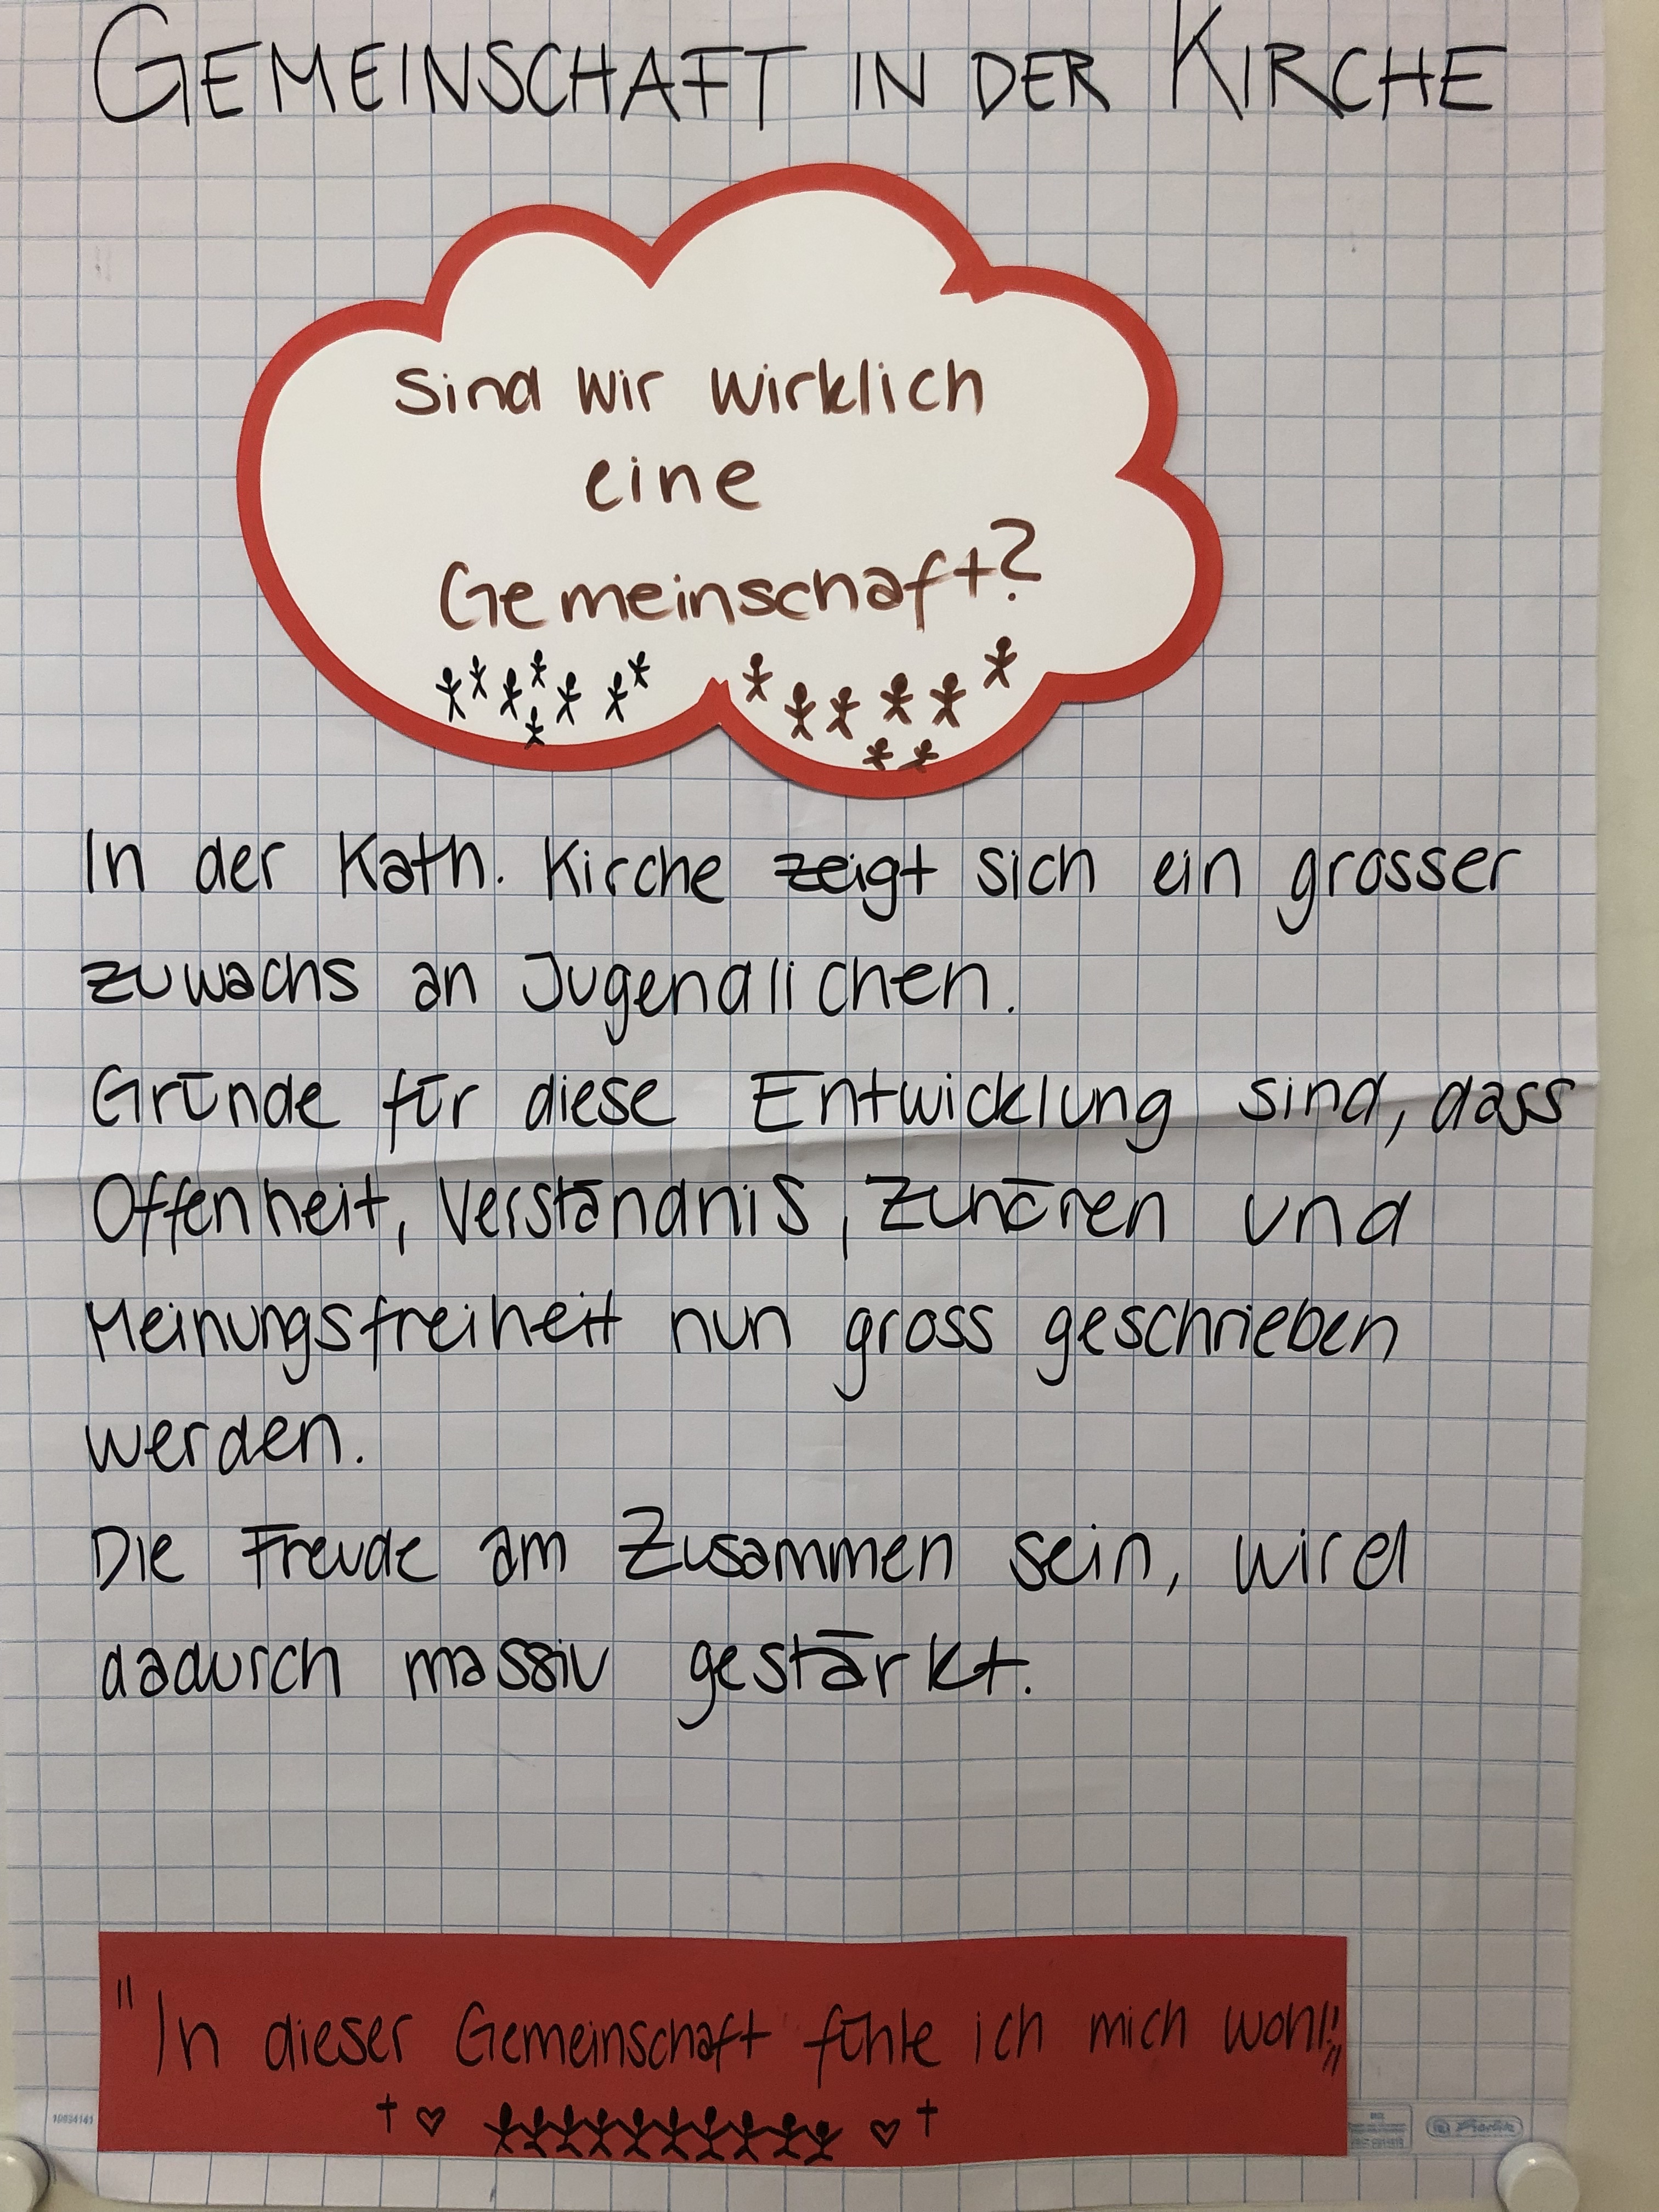 GEMEINSCHAFT IN DER KIRCHE
Sind wir wirklich
eine
Gemeinschaft?
In der Kath. Kirche zeigt sich ein grosser
zuwachs an Jugendlichen.
Gründe für diese Entwicklung sind, dass
Offenheit, Verständnis, Zuhören und
Meinungsfreiheit nun gross geschrieben
werden.
Die Freude am Zusammen sein, wird
dadurch massiv gestärkt.
"In dieser Gemeinschaft fühle ich mich wohl!"
10934141